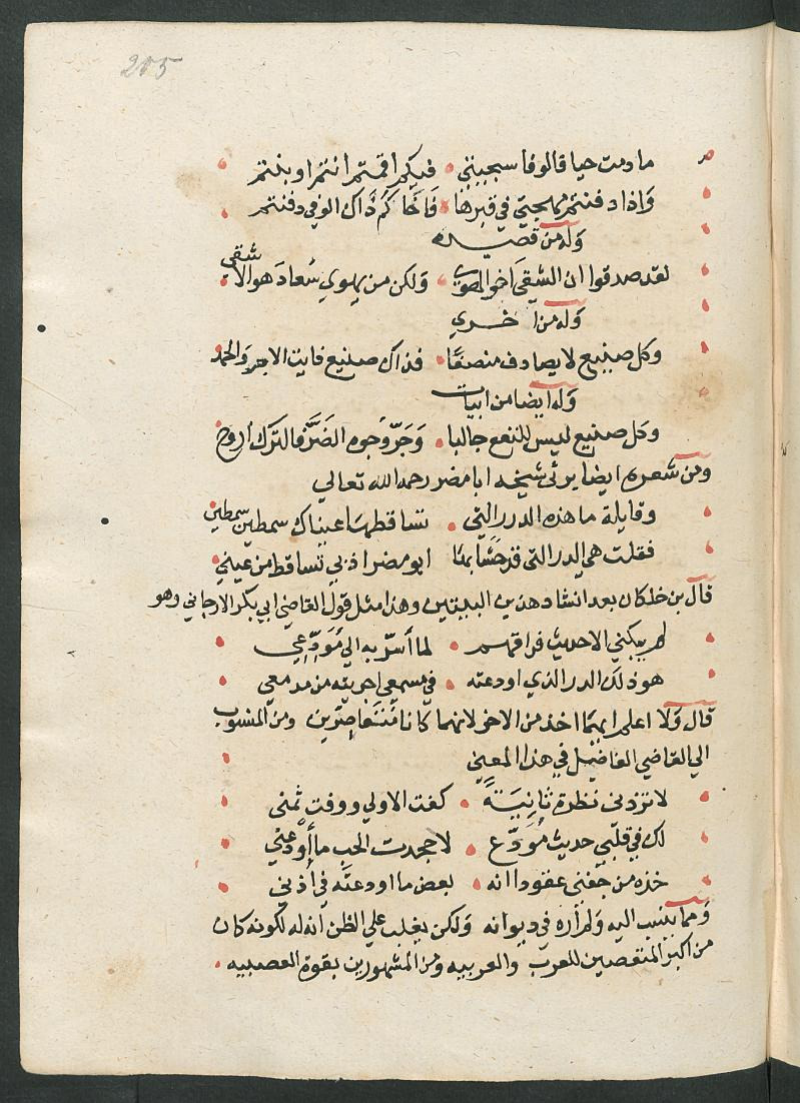 205
ما دمت حيا قالوفا سجيتي • فيكم اقمتم انتم او بنتم
واذا دفنتم مهجتي في قبرها • فاخاكم ذاك الوفي دفنتم
وله من قصيده
لقد صدقوا ان الشقي اخو الهوي • ولكن من يهوي سعاد هو الاشقي
وله من اخري
وكل صنيع لا يصادف منصفا • فذاك صنيع فايت الاجر والحمد
وله ايضا من ابيات
وكل صنيع ليس للنفع جالبا • وجر وجوه الضر فالترك اروح
ومن شعره ايضا يرثي شيخه ابا مضر رحمه الله تعالي
وقايلة ما هذه الدرر التي • تساقطها عيناك سمطين سمطين
فقلت هي الدر التي قد حشا بها ابو مضر اذني تساقط من عيني
قال بن خلكان بعد انشاد هذين البيتين وهذا مثل قول القاضي ابي بكر الارجاني وهو
لم يبكني الاحديث فراقهم • لما أسر به الي مودعي
هو ذلك الدر الذي اودعته • في مسمعي اجريته من مدمعي
قال ولا اعلم ايهما اخذ من الاخر لانهما كانا متعاصرين ومن المنسوب
الي القاضي الفاضل في هذا المعني
لا تزدني نظرة ثانية • كفت الاولي ووفت ثمني
لك في قلبي حديث مودع • لا جحدت الحب ما أودعني
خذه من جفني عقودا انه • بعض ما اودعته في أذني
ومما ينسب اليه ولم أره في ديوانه ولكن يغلب علي الظن انه له لكونه كان
من اكبر المتعصبين للعرب والعربيه ومن المشهورين بقوة العصبيه •